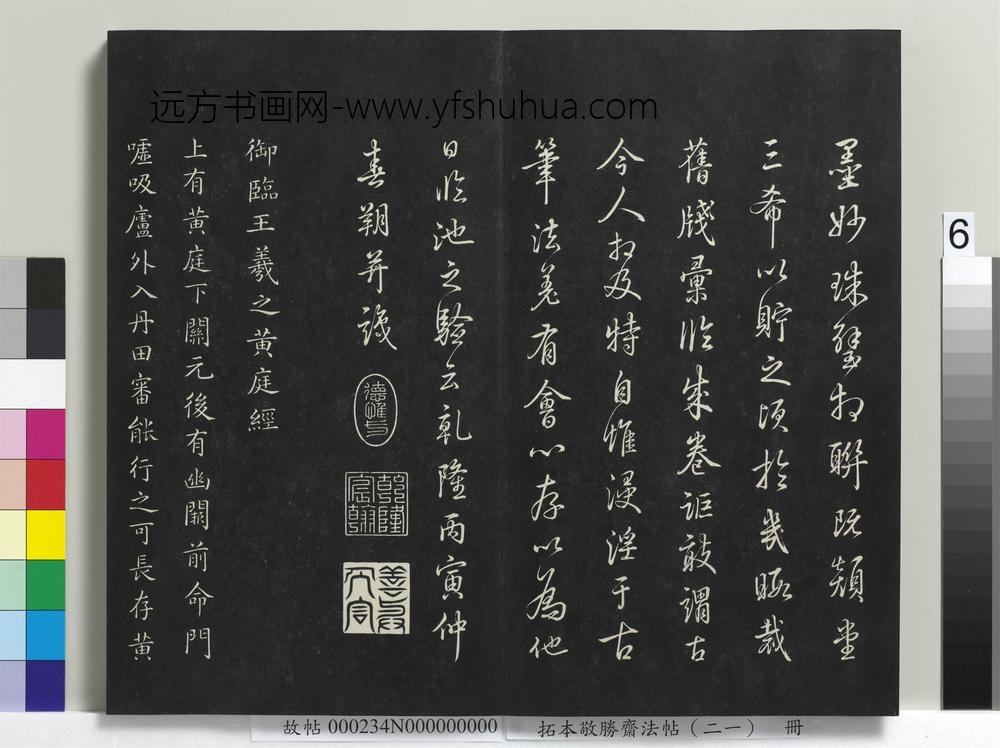 远方书画网-www.yfshuhua.com
墨妙珠璧相聯既頖堂
三希以貯之項於幾暇裁
舊牋彙臨成卷詎敢謂古
今人相及特自惟浸淫于古
筆法差有會心存以為他
日臨池之驗云乾隆丙寅仲
春朔并識
德惟馨
乾隆宸翰
御臨王羲之黃庭經
上有黃庭下關元後有幽闕前命門
噓吸廬外入丹田審能行之可長存黃
6
故帖 000234N000000000 拓本敬勝齋法帖（二一） 冊